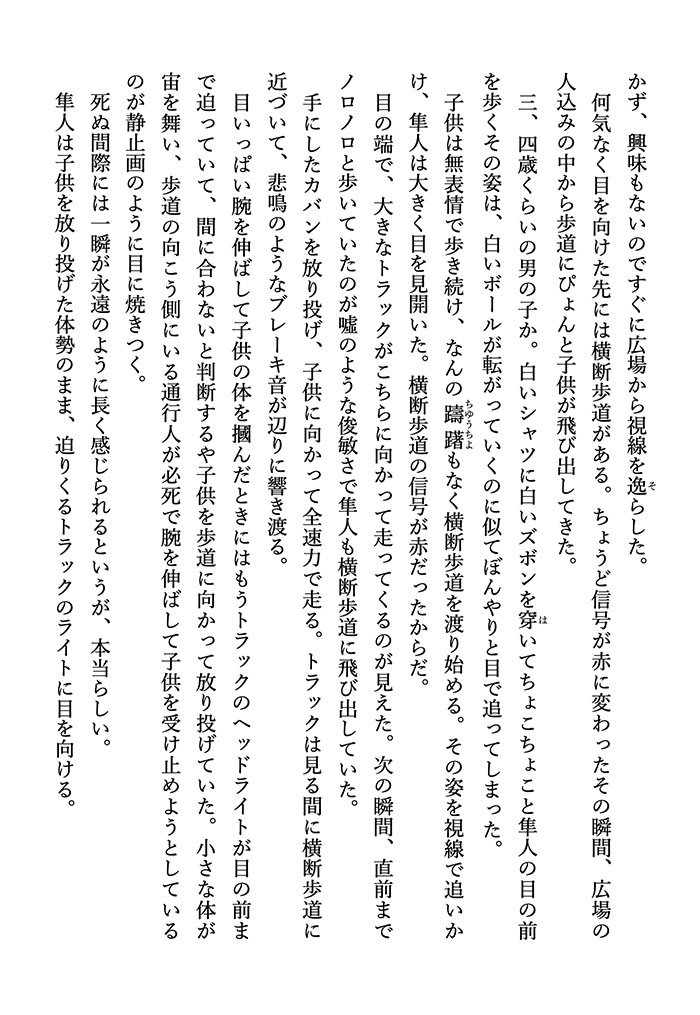 かず、興味もないのですぐに広場から視線を逸らした。
何気なく目を向けた先には横断歩道がある。ちょうど信号が赤に変わったその瞬間、広場の
人込みの中から歩道にぴょんと子供が飛び出してきた。
三、四歳くらいの男の子か。白いシャツに白いズボンを穿いてちょこちょこと隼人の目の前
を歩くその姿は、白いボールが転がっていくのに似てぼんやりと目で追ってしまった。
子供は無表情で歩き続け、なんの躊躇もなく横断歩道を渡り始める。その姿を視線で追いか
け、隼人は大きく目を見開いた。横断歩道の信号が赤だったからだ。
目の端で、大きなトラックがこちらに向かって走ってくるのが見えた。次の瞬間、直前まで
ノロノロと歩いていたのが嘘のような俊敏さで隼人も横断歩道に飛び出していた。
手にしたカバンを放り投げ、子供に向かって全速力で走る。トラックは見る間に横断歩道に
近づいて、悲鳴のようなブレーキ音が辺りに響き渡る。
目いっぱい腕を伸ばして子供の体を摑んだときにはもうトラックのヘッドライトが目の前ま
で迫っていて、間に合わないと判断するや子供を歩道に向かって放り投げていた。小さな体が
宙を舞い、歩道の向こう側にいる通行人が必死で腕を伸ばして子供を受け止めようとしている
のが静止画のように目に焼きつく。
死ぬ間際には一瞬が永遠のように長く感じられるというが、本当らしい。
隼人は子供を放り投げた体勢のまま、迫りくるトラックのライトに目を向ける。